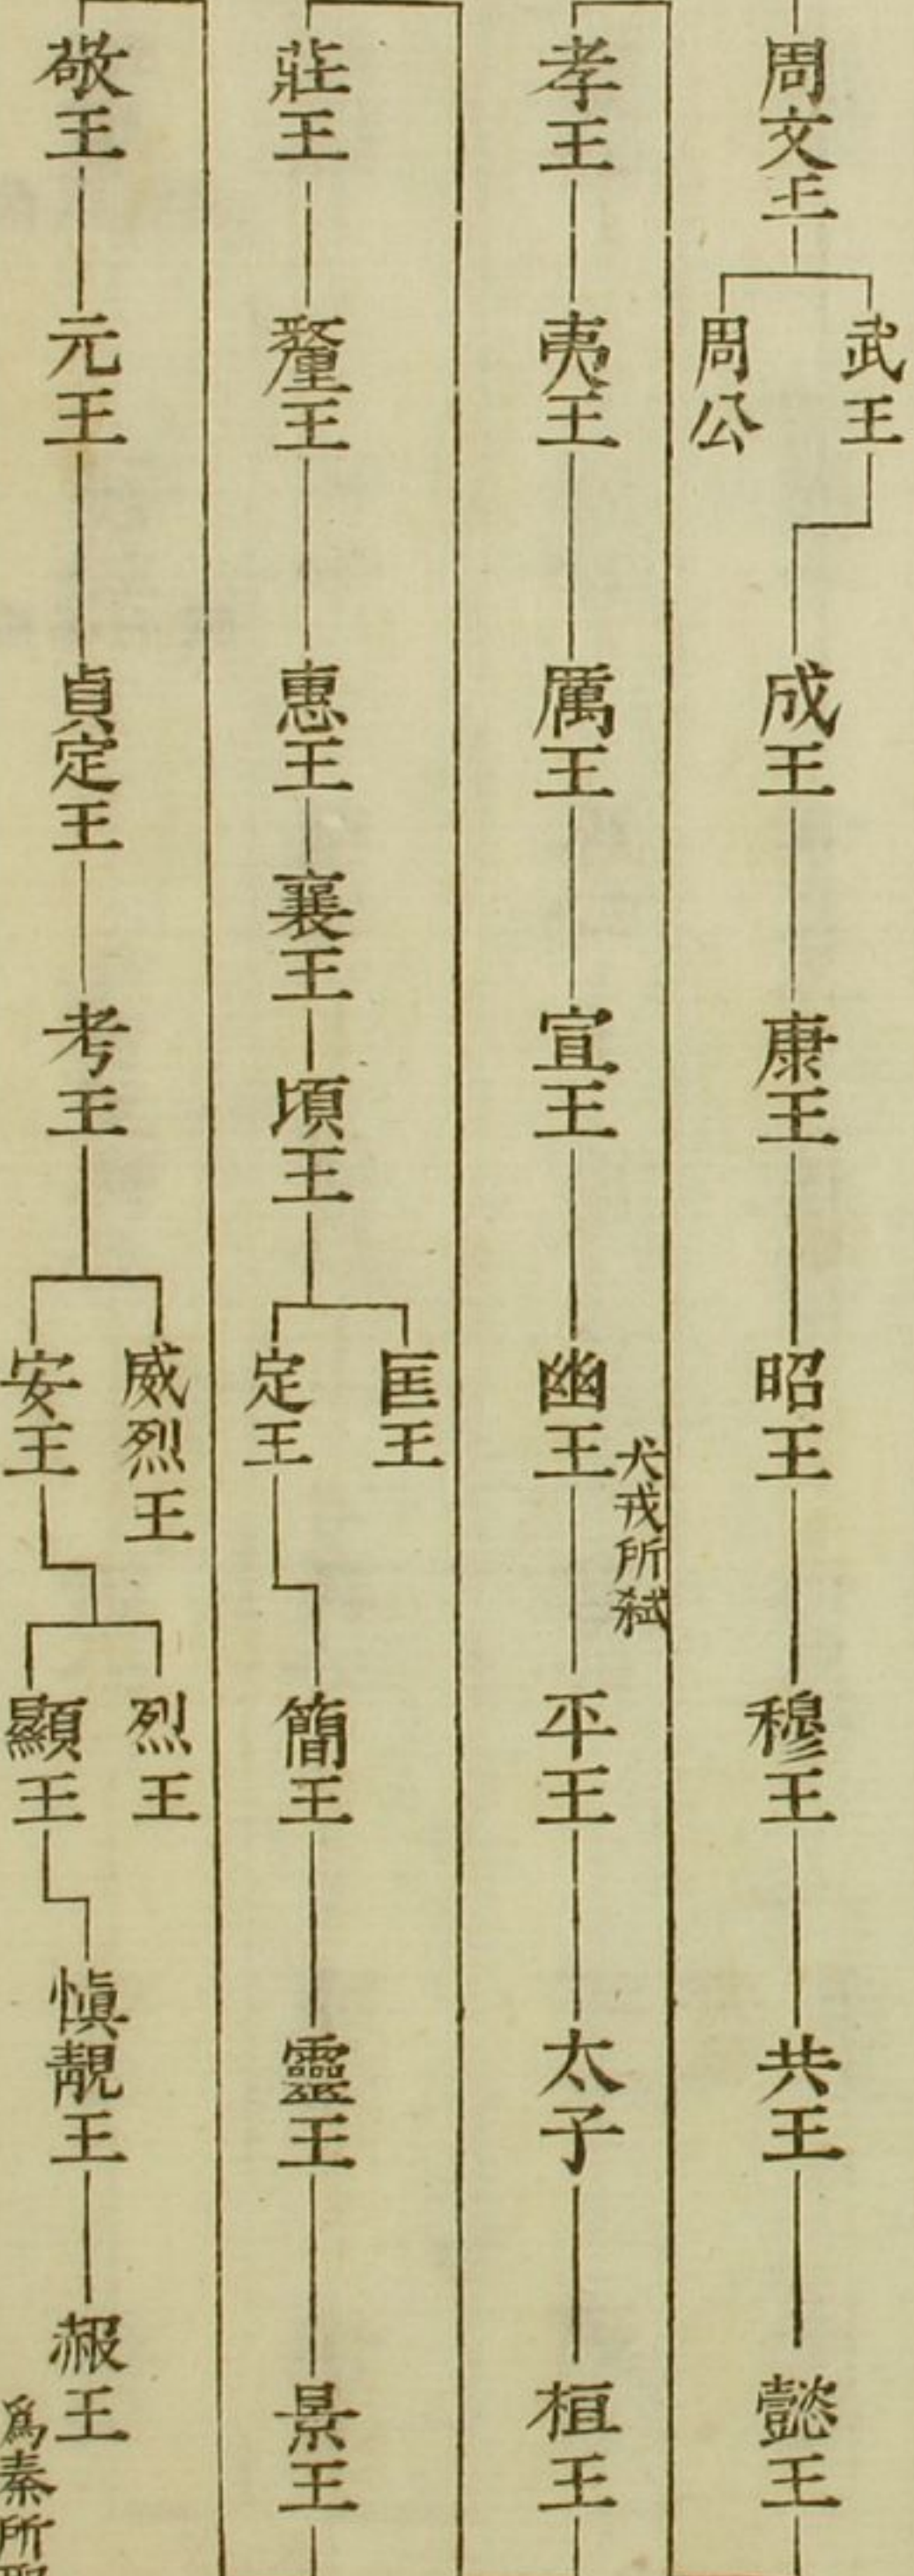 周文王
武王
周公
成王
康王
昭王
穆王
共王
懿王
孝王
夷王
厲王
宣王
幽王
犬戎所弑
平王
太子
桓王
莊王
釐王
惠王
襄王
頃王
匡王
定王
簡王
靈王
景王
敬王
元王
貞定王
考王
威烈王
安王
烈王
顯王
愼靚王
赧王
爲秦所